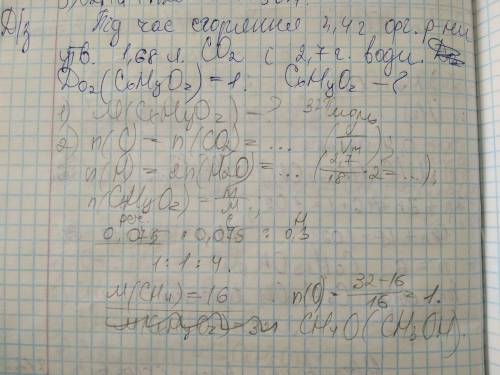 Д/з Під час згоряння 2,4 г орг. р-ни
утв. 1,68 л. CO₂ і 2,7 г. води.
D O₂ (CₓHᵧO₂) = 1. CₓHᵧO₂ – ?
1) M(CₓHᵧO₂) = ? 32 г/моль
2) n(C) = n(CO₂) = ... (V/Vm);
n(H) = 2n(H₂O) = ... (2,7/18 · 2 = ...);
n(CₓHᵧO₂) = m/M;
реч. C H
0,075 : 0,075 : 0,3
1 : 1 : 4.
M(CH₄) = 16 n(O) = 32-16/16 = 1.
CH₄O (CH₃OH).